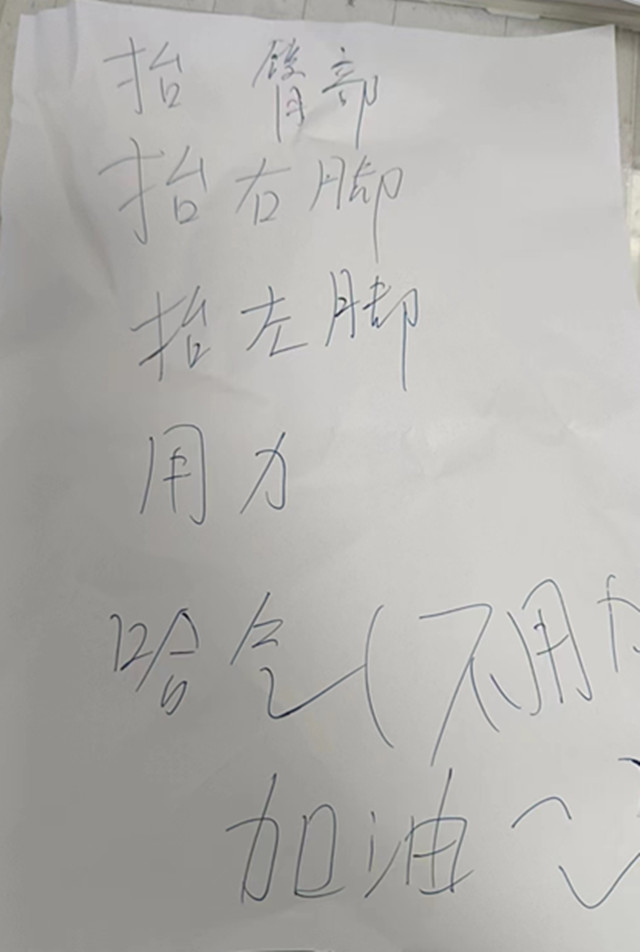 抬臀部
抬右脚
抬左脚
用力
哈气(不用力
加油~